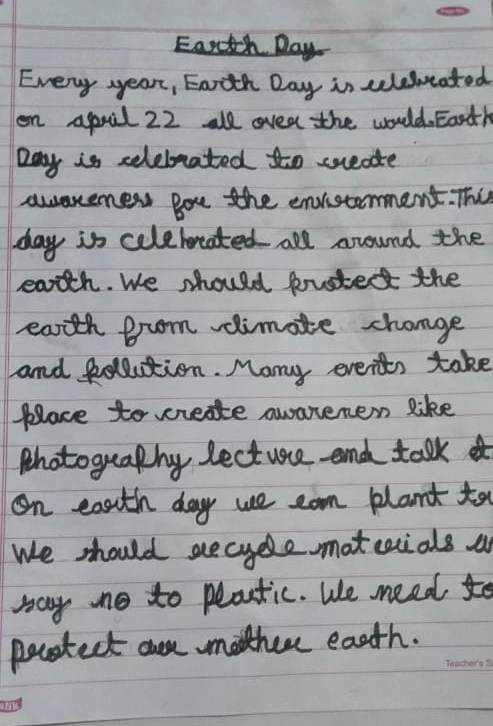 Page No.
Earth Day
Every year, Earth Day is celebrated
on april 22 all over the world. Earth
Day is celebrated to create
awareness for the environment. This
day is celebrated all around the
earth. We should protect the
earth from climate change
and pollution. Many events take
place to create awareness like
photography, lecture and talk
On earth day we can plant
We should recycle materials
say no to plastic. We need to
protect our mother earth.
Teacher's S